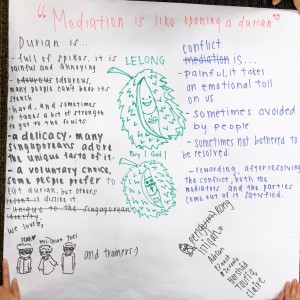 "Mediation is like opening a durian"
Durian is...
- full of spikes, it is
painful and annoying
- odourous odourous,
many people can't bear its
stench
- hard, and sometimes
it takes a bit of strength
to get to the fruits.
- a delicacy. many
singaporeans adore
the unique taste of it.
- a voluntary choice,
some people prefer to
eat durian, but others
dislike it.
- unique to the singaporean
identity.
we love,
Mei-Chian
Joel
and trainers:)
LELONG
Buy 1 Get 1
conflict
mediation is...
- painful, it takes
an emotional toll
on us
- sometimes
avoided by
people
- sometimes not bothered to
be resolved.
- rewarding, after resolving
the conflict, both the
mediators and the parties
come out of it satisfied.
claire